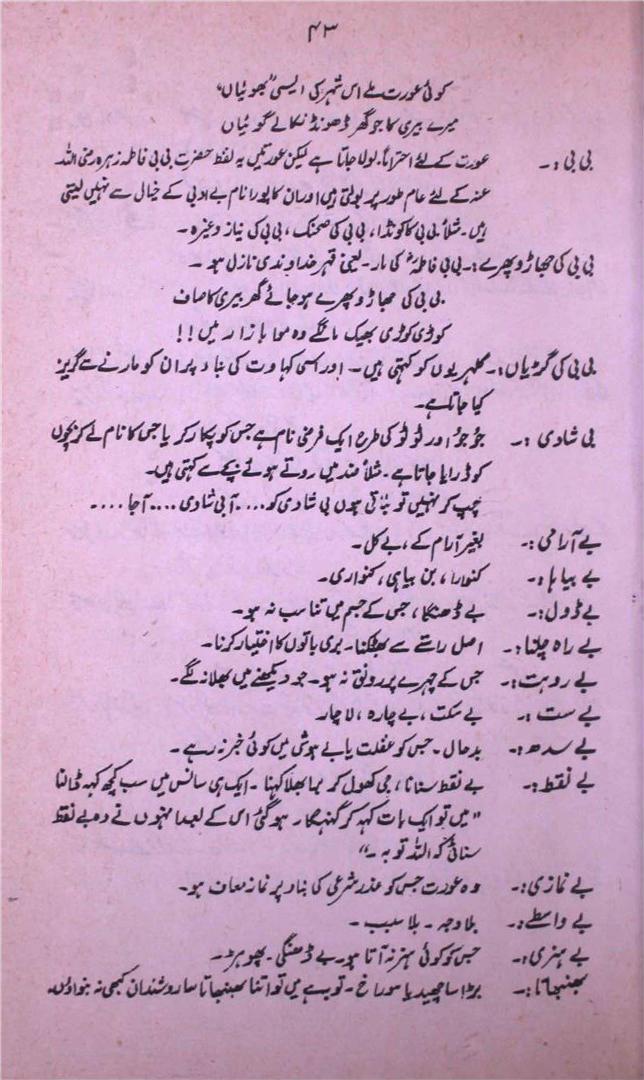 ۴۳
کوئی عورت ملے اس شہر کی ایسی "بھوئیاں"
میرے بیری کا جو گھر ڈھونڈ نکالے گوئیاں
بی بی :۔ عورت کے لئے احتراماً بولا جاتا ہے لیکن عورتیں یہ لفظ حضرت بی بی فاطمہ زہرہ رضی اللہ
عنہ کے لئے عام طور پر بولتی ہیں اور ان کا پورا نام بے ادبی کے خیال سے نہیں لیتی
ہیں۔ مثلاً بی بی کا کونڈا، بی بی کی صحنک، بی بی کی نیاز وغیرہ۔
بی بی کی جھاڑو پھرے :۔ بی بی فاطمہؓ کی مار۔ یعنی قہر خداوندی نازل ہو۔
بی بی کی جھاڑو پھرے ہو جائے گھر بیری کا صاف
کوڑی کوڑی بھیک مانگے وہ موا بازار میں !!
بی بی کی گڑیاں :۔ گلہریوں کو کہتی ہیں۔ اور اسی کہاوت کی بناد پر ان کو مارنے سے گریز
کیا جاتا ہے۔
بی شادی :۔ جوُ جوُ اور لوُ لوُ کی طرح ایک فرضی نام ہے جس کو پکار کر یا جس کا نام لے کر بچوں
کو ڈرایا جاتا ہے۔ مثلاً ضد میں روتے ہوئے بچے سے کہتی ہیں۔
چپ کر نہیں تو بلاتی ہوں بی شادی کو.... آ بی شادی .... آ جا ....
بے آرامی :۔ بغیر آرام کے، بے کل۔
بے بیاہا :۔ کنوارا، بن بیاہی، کنواری۔
بے ڈول :۔ بے ڈھنگا، جس کے جسم میں تناسب نہ ہو۔
بے راہ چلنا :۔ اصل راستے سے بھٹکنا۔ بری باتوں کا اختیار کرنا۔
بے روہت :۔ جس کے چہرے پر رونق نہ ہو۔ جو دیکھنے میں بھلا نہ لگے۔
بے ست :۔ بے سکت، بے چارہ، لاچار
بے سدھ :۔ بدحال۔ جس کو غفلت یا بے ہوشی میں کوئی خبر نہ رہے۔
بے نقط :۔ بے نقط سنانا، جی کھول کر برا بھلا کہنا۔ ایک ہی سانس میں سب کچھ کہہ ڈالنا
"میں تو ایک بات کہہ کر گنہگار ہو گئی اس کے بعد انہوں نے وہ بے نقط
سنائی کہ اللہ توبہ۔"
بے نمازی :۔ وہ عورت جس کو عذر شرعی کی بناد پر نماز معاف ہو۔
بے واسطے :۔ بلا وجہ۔ بلا سبب۔
بے ہنری :۔ جس کو کوئی ہنر نہ آتا ہو۔ بے ڈھنگی۔ پھوہڑ۔
بھنبھاتا :۔ بڑا سا چھید یا سوراخ۔ توبہ ہے میں تو اتنا بھنبھاتا سا روشندان کبھی نہ بنواؤں۔